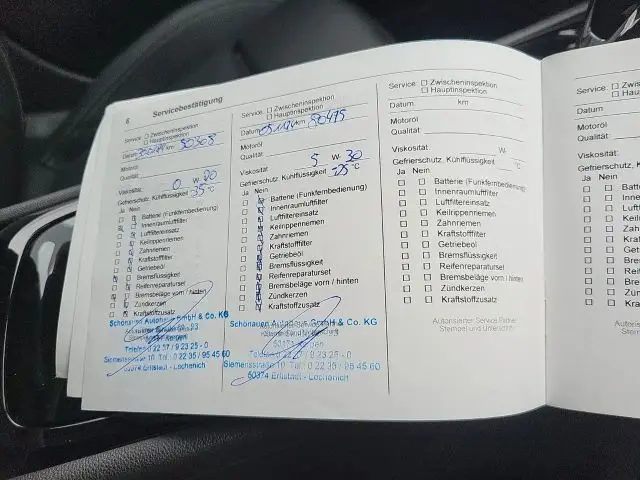 6 Servicebestätigung
Service: Zwischeninspektion
Hauptinspektion
Datum km 50308
Motoröl
Qualität
Viskosität: 0 W-
Gefrierschutz, Kühlflüssigkeit -35 °C
Ja Nein
Batterie (Funkfernbedienung)
Innenraumluftfilter
Luftfiltereinsatz
Keilrippenriemen
Zahnriemen
Kraftstofffilter
Getriebeöl
Bremsflüssigkeit
Reifenreparaturset
Bremsbeläge vorn / hinten
Zündkerzen
Kraftstoffzusatz
Schönauen Autohaus GmbH & Co. KG
50171 Kerpen
Telefon 0 22 37 / 9 23 25 - 0
Siemensstraße 10 Tel.: 0 22 35 / 95 45 60
50374 Erftstadt - Lechenich
Service: Zwischeninspektion
Hauptinspektion
Datum km 80475
Motoröl
Qualität
Viskosität: 5 W- 30
Gefrierschutz, Kühlflüssigkeit -25 °C
Ja Nein
Batterie (Funkfernbedienung)
Innenraumluftfilter
Luftfiltereinsatz
Keilrippenriemen
Zahnriemen
Kraftstofffilter
Getriebeöl
Bremsflüssigkeit
Reifenreparaturset
Bremsbeläge vorn / hinten
Zündkerzen
Kraftstoffzusatz
Schönauen Autohaus GmbH & Co. KG
50171 Kerpen
Telefon 0 22 37 / 9 23 25 - 0
Siemensstraße 10 Tel.: 0 22 35 / 95 45 60
50374 Erftstadt - Lechenich
Service: Zwischeninspektion
Hauptinspektion
Datum km
Motoröl
Qualität
Viskosität: W-
Gefrierschutz, Kühlflüssigkeit °C
Ja Nein
Batterie (Funkfernbedienung)
Innenraumluftfilter
Luftfiltereinsatz
Keilrippenriemen
Zahnriemen
Kraftstofffilter
Getriebeöl
Bremsflüssigkeit
Reifenreparaturset
Bremsbeläge vorn / hinten
Zündkerzen
Kraftstoffzusatz
Autorisierter Service Partner
Stempel und Unterschrift
Service:
Datum
Motoröl
Qualität
Viskosität:
Gefrierschutz,
Ja Nein